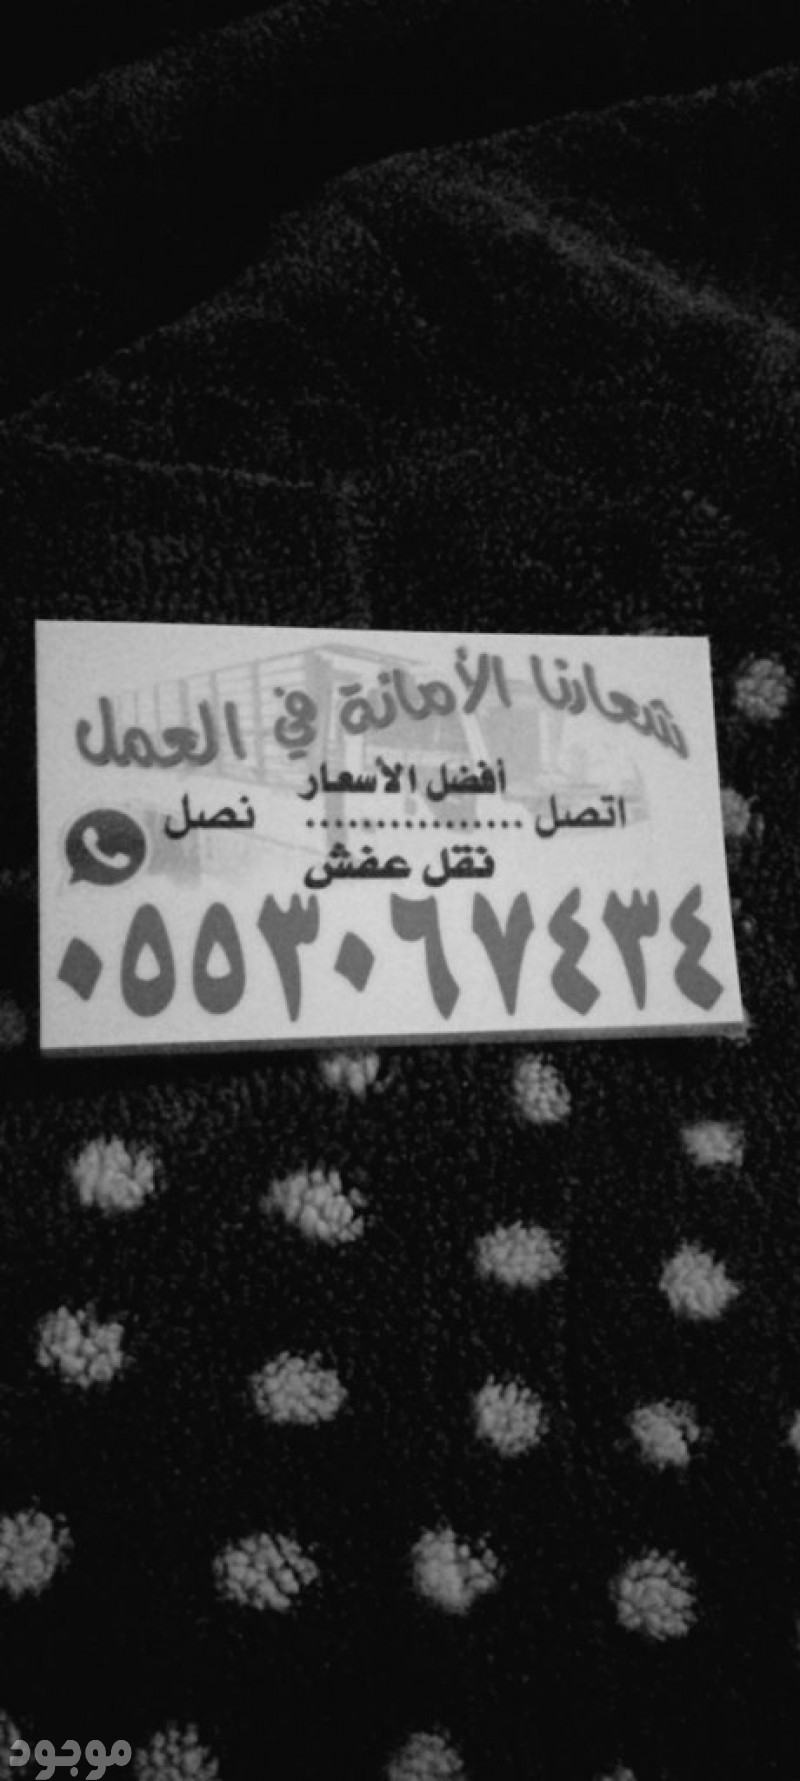 شعارنا الأمانة في العمل
أفضل الأسعار
اتصل ................ نصل
نقل عفش
٠٥٥٣٠٦٧٤٣٤
موجود